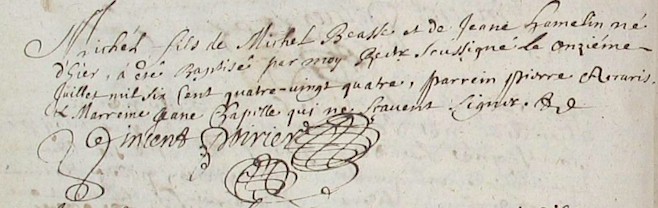 Michel fils de Michel Beasse et de Jeane hamelin né
d'hier, a été Baptisé par moy Rectr Soussigné le onziéme
Juillet mil six Cent quatre-vingt quatre, parrein pierre
& Marreine Jeane Bapille qui ne scavent signer